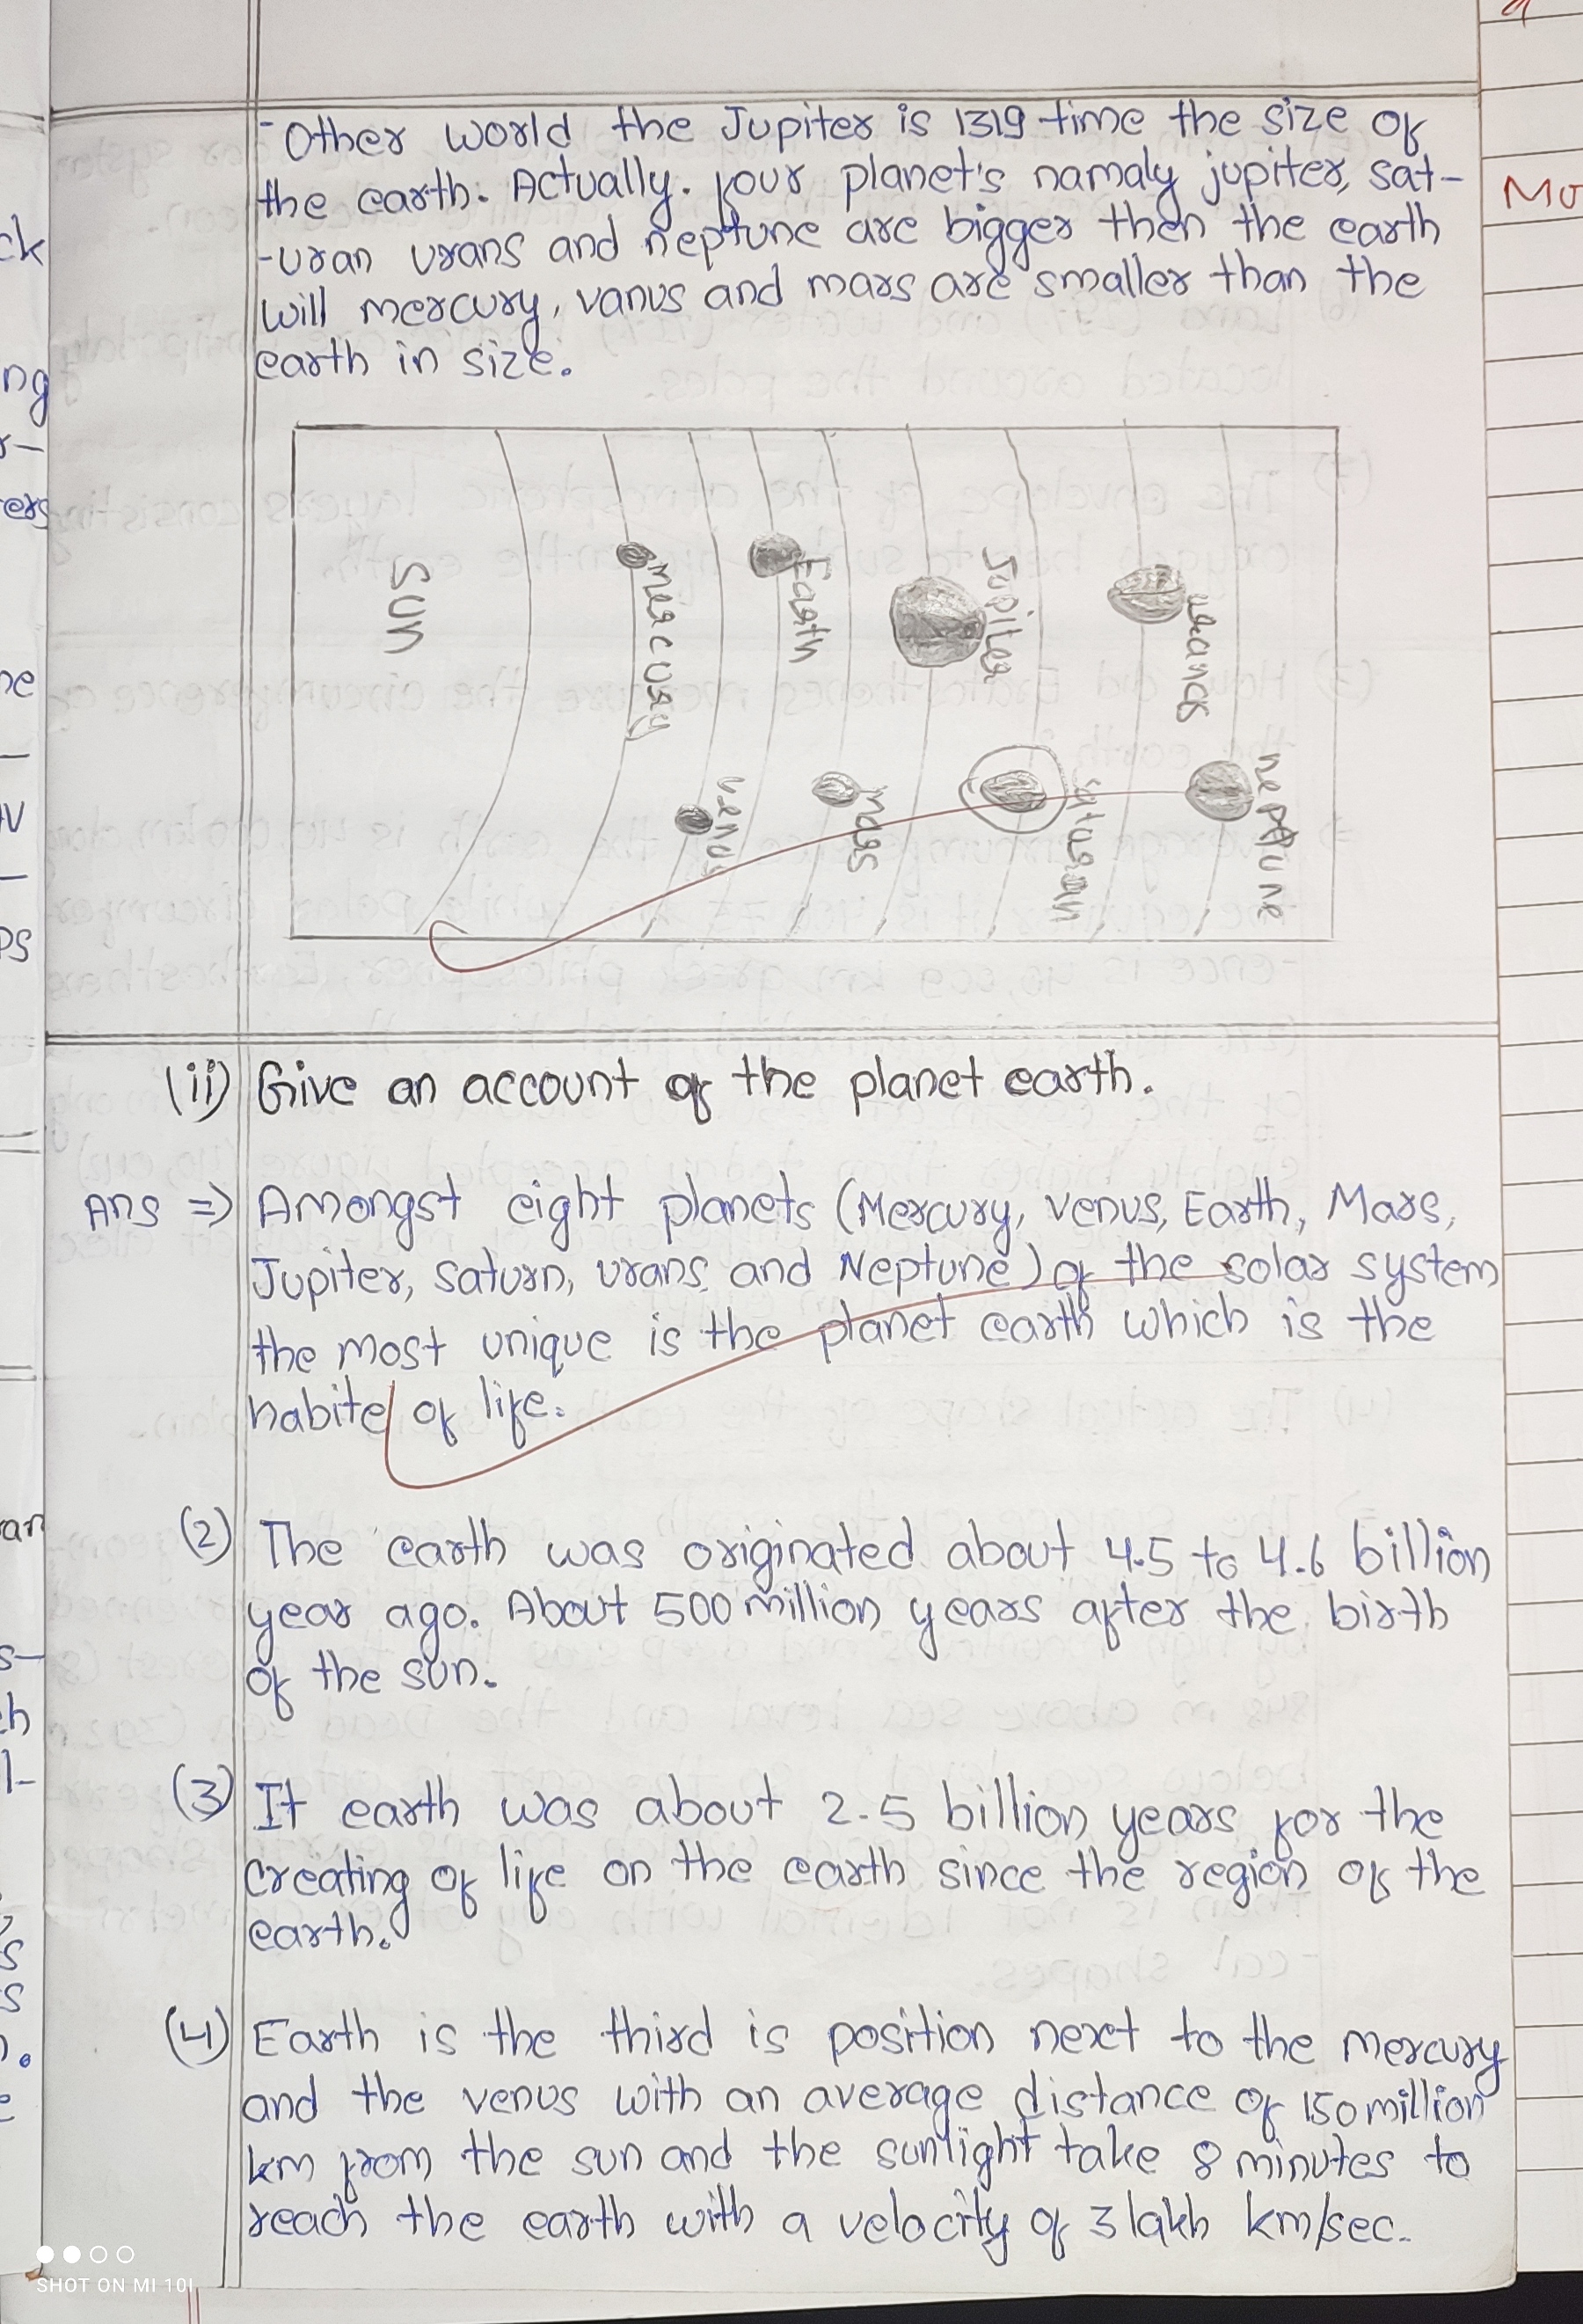 -Other world the Jupiter is 1319 time the size of
the earth. Actually. four planet's namaly jupiter, sat-
-uran urans and neptune are bigger then the earth
will mercury, vanus and mars are smaller than the
earth in size.
SUN
mercury
venus
Earth
mars
Jupiter
saturan
uranus
neptune
(ii) Give an account of the planet earth.
Ans => Amongst eight planets (Mercury, venus, Earth, Mars,
Jupiter, saturn, urans, and Neptune) of the solar system
the most unique is the planet earth which is the
habite of life.
(2) The earth was originated about 4.5 to 4.6 billion
year ago. About 500 million years after the birth
of the sun.
(3) It earth was about 2.5 billion years for the
creating of life on the earth since the region of the
earth.
(4) Earth is the third is position next to the mercury
and the venus with an average distance of 150 million
km from the sun and the sunlight take 8 minutes to
reach the earth with a velocity of 3 lakh km/sec.
SHOT ON MI 10I